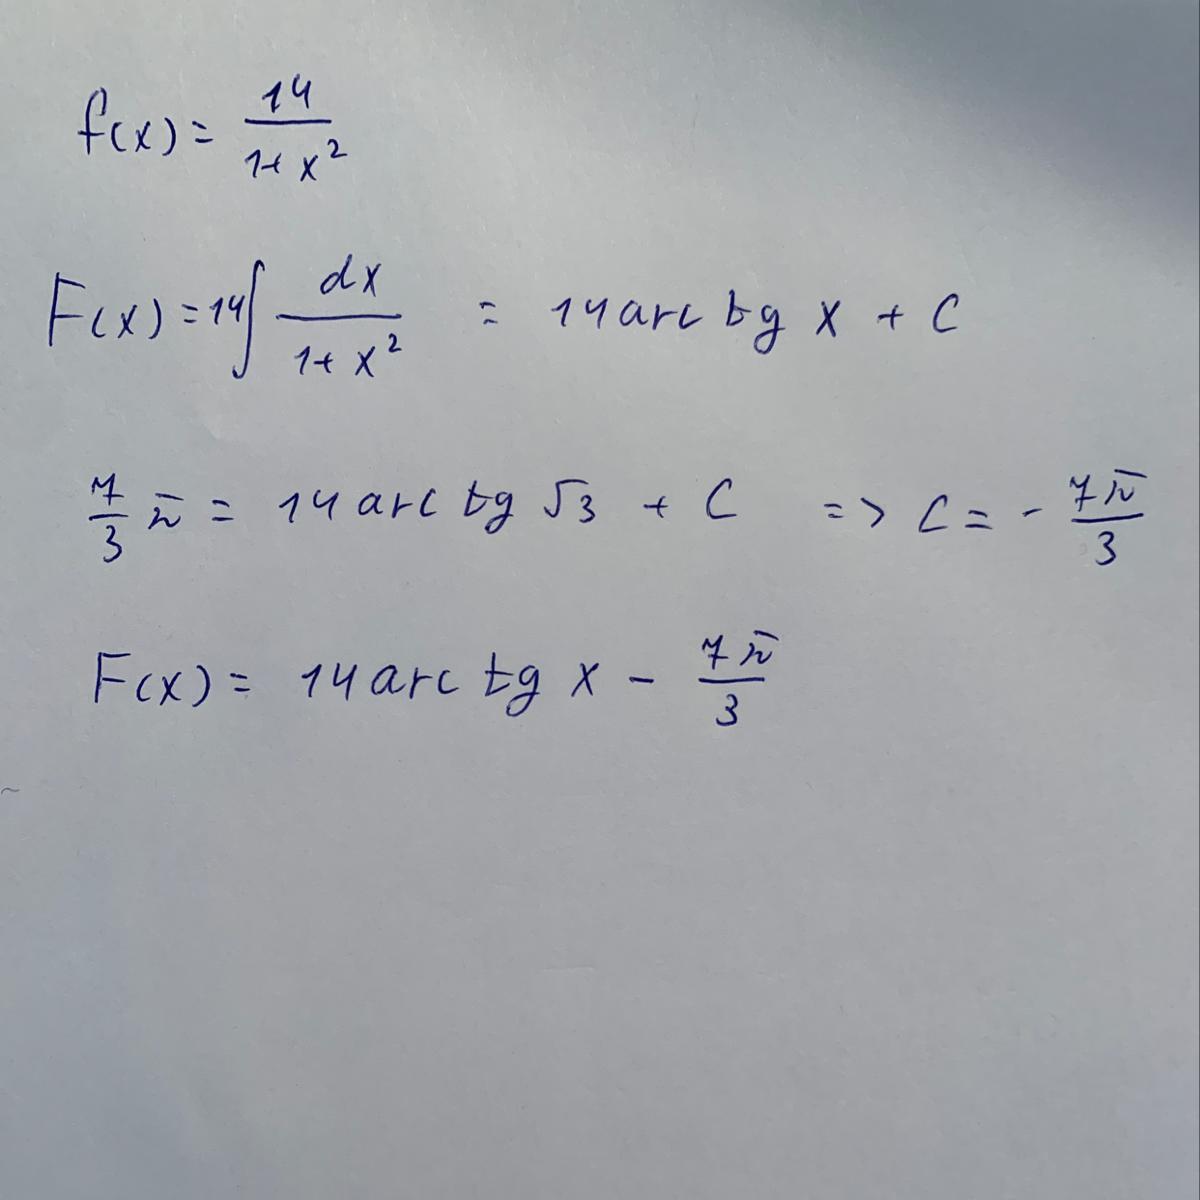 f(x) = 14/(1+x²)
F(x) = 14∫ dx/(1+x²) = 14 arc tg x + C
7/3 π = 14 arc tg √3 + C => C = - 7π/3
F(x) = 14 arc tg x - 7π/3